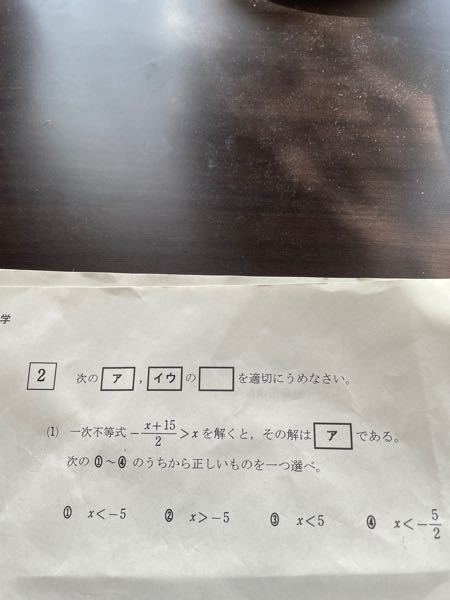 学
2 次の ア , イウ の □ を適切にうめなさい。
(1) 一次不等式 -\frac{x+15}{2} > x を解くと, その解は ア である。
次の①～④のうちから正しいものを一つ選べ。
① x<-5 ② x>-5 ③ x<5 ④ x<-\frac{5}{2}